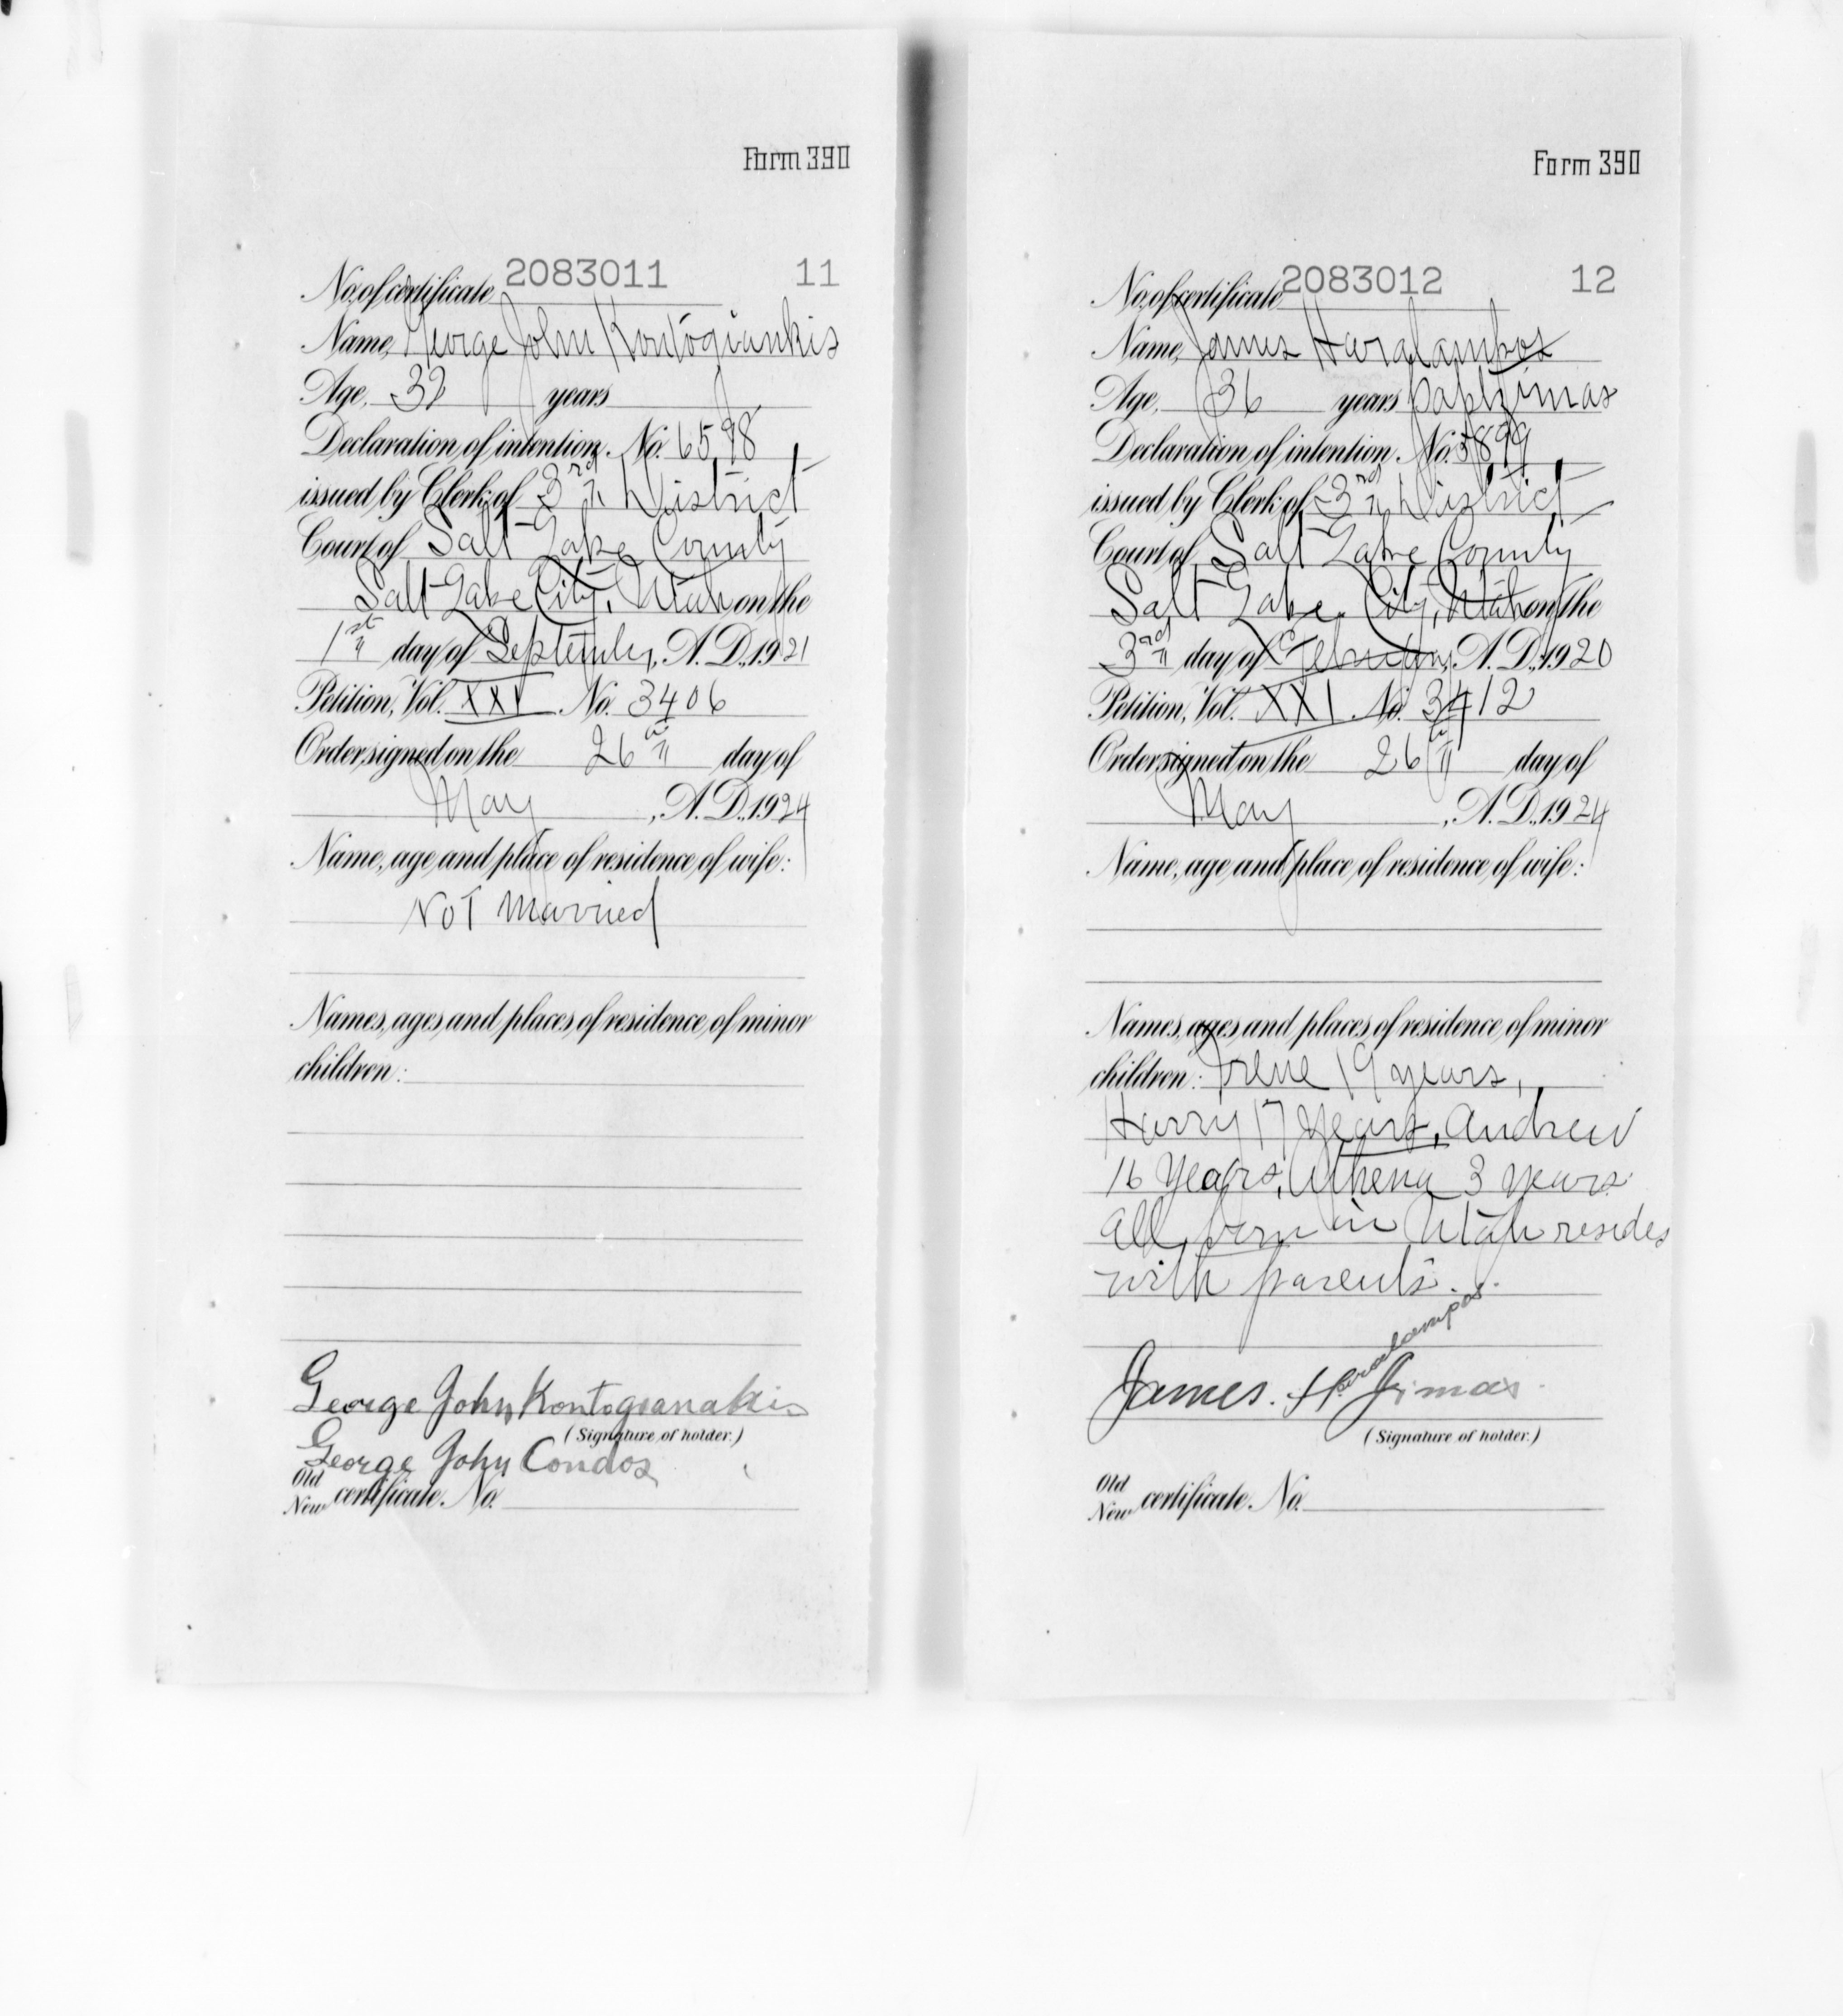 Form 390
No. of certificate 2083011 11
Name, George John Kontogiankis
Age, 32 years
Declaration of intention. No. 6598
issued by Clerk of 3rd District
Court of Salt Lake County
Salt Lake City, Utah on the
1st day of September, A. D., 1921
Petition, Vol. XXI No. 3406
Order signed on the 26th day of
May, A. D., 1924
Name, age and place of residence of wife:
Not Married
Names, ages and places of residence of minor
children:
George John Kontogianakis
(Signature of holder.)
George John Condos
Old
New certificate. No.
Form 390
No. of certificate 2083012 12
Name, James Haralampos
Age, 36 years
Declaration of intention. No. 5899
issued by Clerk of 3rd District
Court of Salt Lake County
Salt Lake City, Utah on the
3rd day of February, A. D., 1920
Petition, Vol. XXI No. 3412
Order signed on the 26th day of
May, A. D., 1924
Name, age and place of residence of wife:
Names, ages and places of residence of minor
children: Irene 19 years,
Harry 17 Years, Andrew
16 Years, Athena 3 years
all born in Utah resides
with parents.
James. Haralampos Jimas
(Signature of holder.)
Old
New certificate. No.